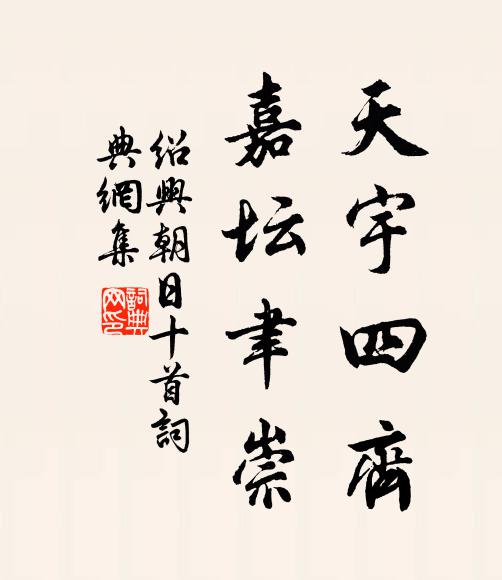 天宇四齊
嘉坛聿崇
绍興朝日十首詞
典網集
詞典网印